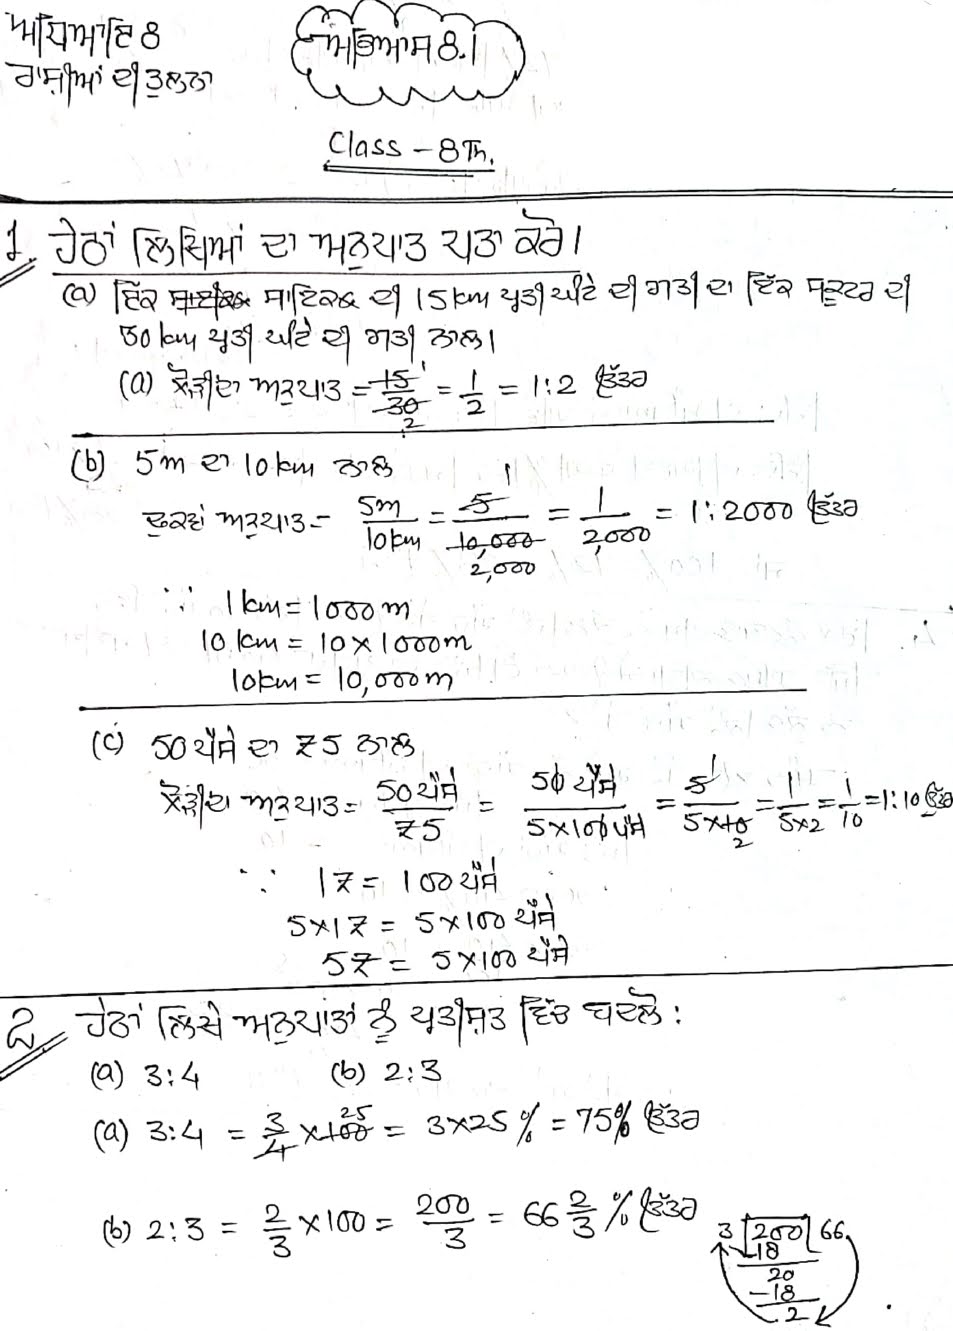 ਅਧਿਆਇ 8
ਰਾਸ਼ੀਆਂ ਦੀ ਤੁਲਨਾ
ਅਭਿਆਸ 8.1
Class - 8Th.
1. ਹੇਠਾਂ ਲਿਖਿਆਂ ਦਾ ਅਨੁਪਾਤ ਪਤਾ ਕਰੋ।
(a) ਇੱਕ ਸਾਇਕਲ ਦੀ 15 km ਪ੍ਰਤੀ ਘੰਟੇ ਦੀ ਗਤੀ ਦਾ ਇੱਕ ਸਕੂਟਰ ਦੀ
30 km ਪ੍ਰਤੀ ਘੰਟੇ ਦੀ ਗਤੀ ਨਾਲ।
(a) ਲੋੜੀਂਦਾ ਅਨੁਪਾਤ = 15/30 = 1/2 = 1:2 ਉੱਤਰ
(b) 5m ਦਾ 10 km ਨਾਲ
ਅਨੁਪਾਤ - 5m/10km = 5/10,000 = 1/2,000 = 1:2000 ਉੱਤਰ
∵ 1 km = 1000 m
10 km = 10 × 1000m
10km = 10,000 m
(c) 50 ਪੈਸੇ ਦਾ ₹5 ਨਾਲ
ਲੋੜੀਂਦਾ ਅਨੁਪਾਤ = 50 ਪੈਸੇ/₹5 = 50 ਪੈਸੇ/5×100 ਪੈਸੇ = 5/5×10 = 1/5×2 = 1/10 = 1:10 ਉੱਤਰ
∵ 1₹ = 100 ਪੈਸੇ
5×1₹ = 5×100 ਪੈਸੇ
5₹ = 5×100 ਪੈਸੇ
2. ਹੇਠਾਂ ਲਿਖੇ ਅਨੁਪਾਤਾਂ ਨੂੰ ਪ੍ਰਤੀਸ਼ਤ ਵਿੱਚ ਬਦਲੋ :
(a) 3:4 (b) 2:3
(a) 3:4 = 3/4 × 100 = 3×25 % = 75% ਉੱਤਰ
(b) 2:3 = 2/3 × 100 = 200/3 = 66 2/3 % ਉੱਤਰ
3 200 66
-18
20
-18
2